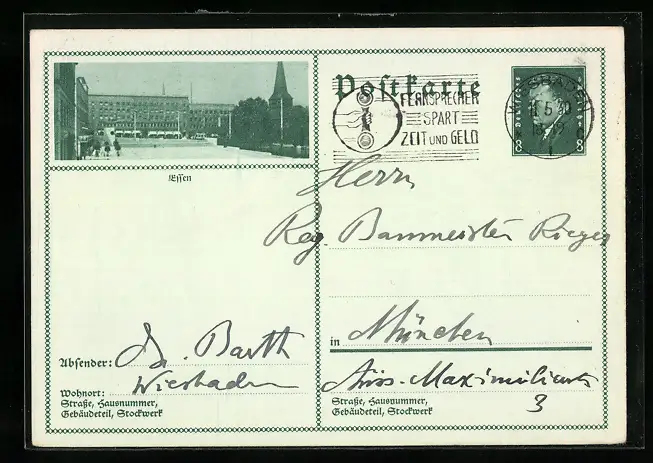 Essen
Postkarte
FERNSPRECHER
SPART
ZEIT UND GELD
WIESBADEN
8 8
Herrn
Reg. Baumeister Rieger
in München
Maximilianstr
3
Straße, Hausnummer,
Gebäudeteil, Stockwerk
Absender: Dr. Barth
Wohnort: Wiesbaden
Straße, Hausnummer,
Gebäudeteil, Stockwerk